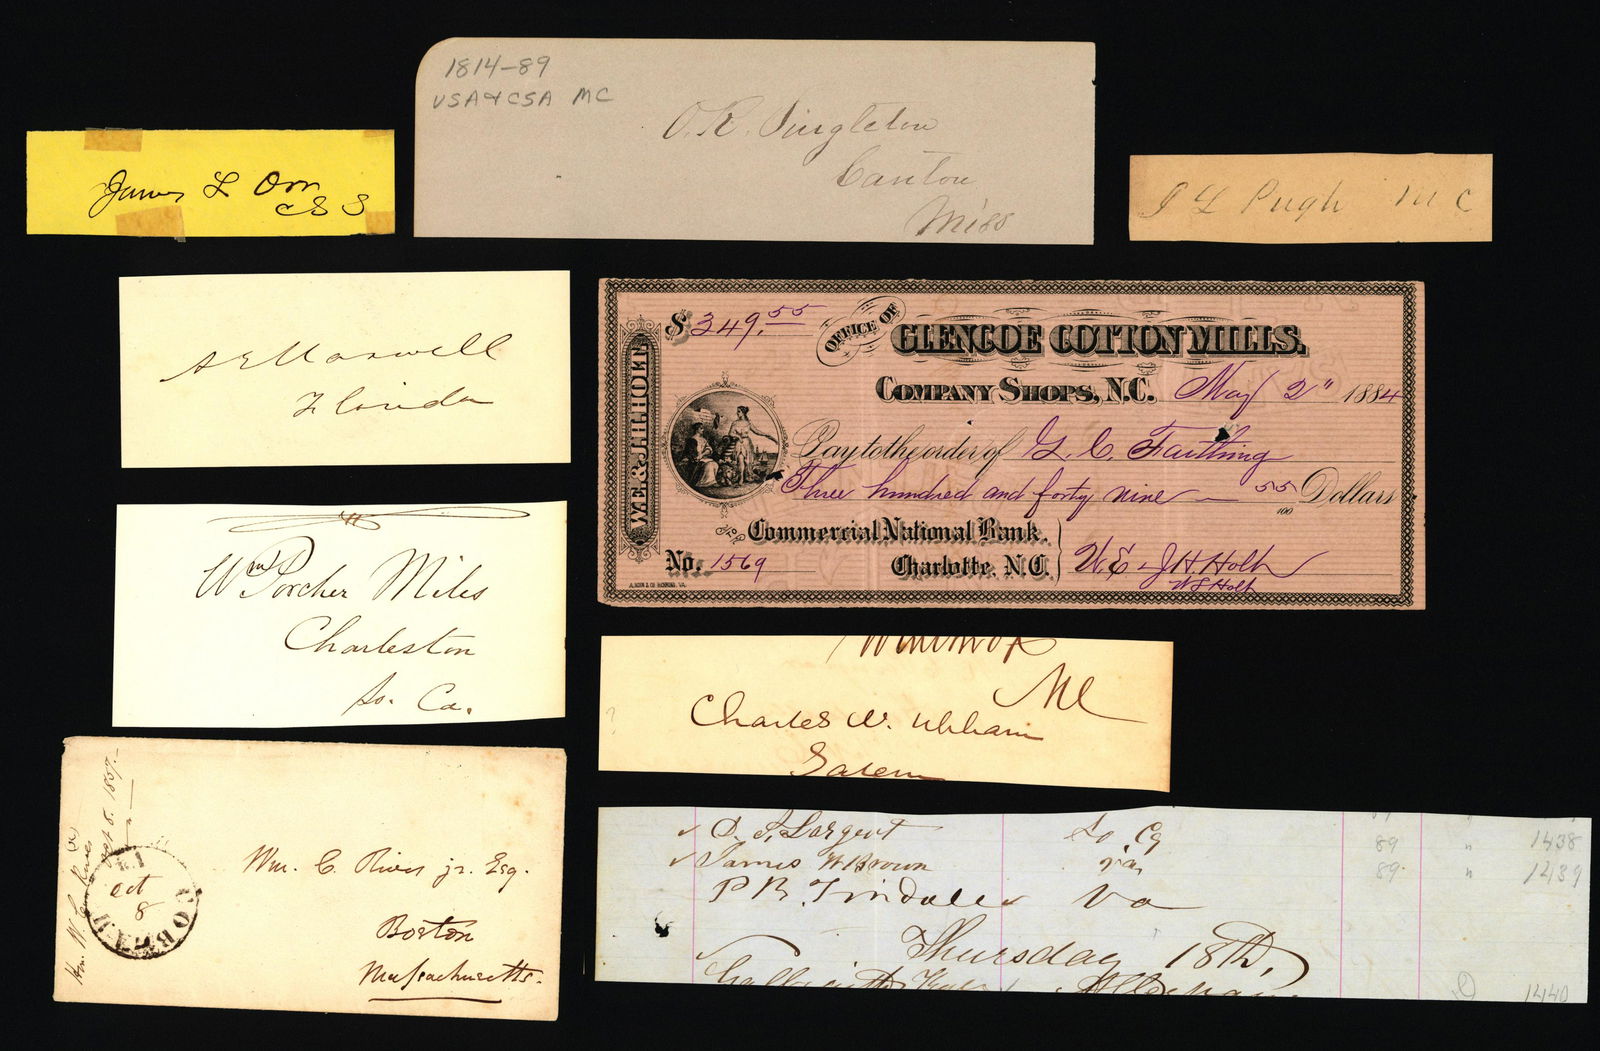 1814-89
USA & CSA MC
O. R. Singleton
Canton
Miss
James L Orr
CSS
J L Pugh MC
A E Maxwell
Florida
$349.55
OFFICE OF
GLENCOE COTTON MILLS.
COMPANY SHOPS, N.C. May 2" 1884
W.E. & J.H. HOLT.
Pay to the order of G. C. Faithing
Three hundred and forty nine 55/100 Dollars
Commercial National Bank,
Charlotte, N.C.
No. 1569
W E & J H. Holt
W S Holt
Wm Porcher Miles
Charleston
So. Ca.
MC
Charles W.
Salem
Oct 8. 1857.
Oct
8
Wm. C. Rives jr. Esq.
Boston
Massachusetts.
D. S. Largent So Ca 89 " 1438
James W Brown Va 89 " 1439
P B Tindale Va
Thursday 18th,
1440